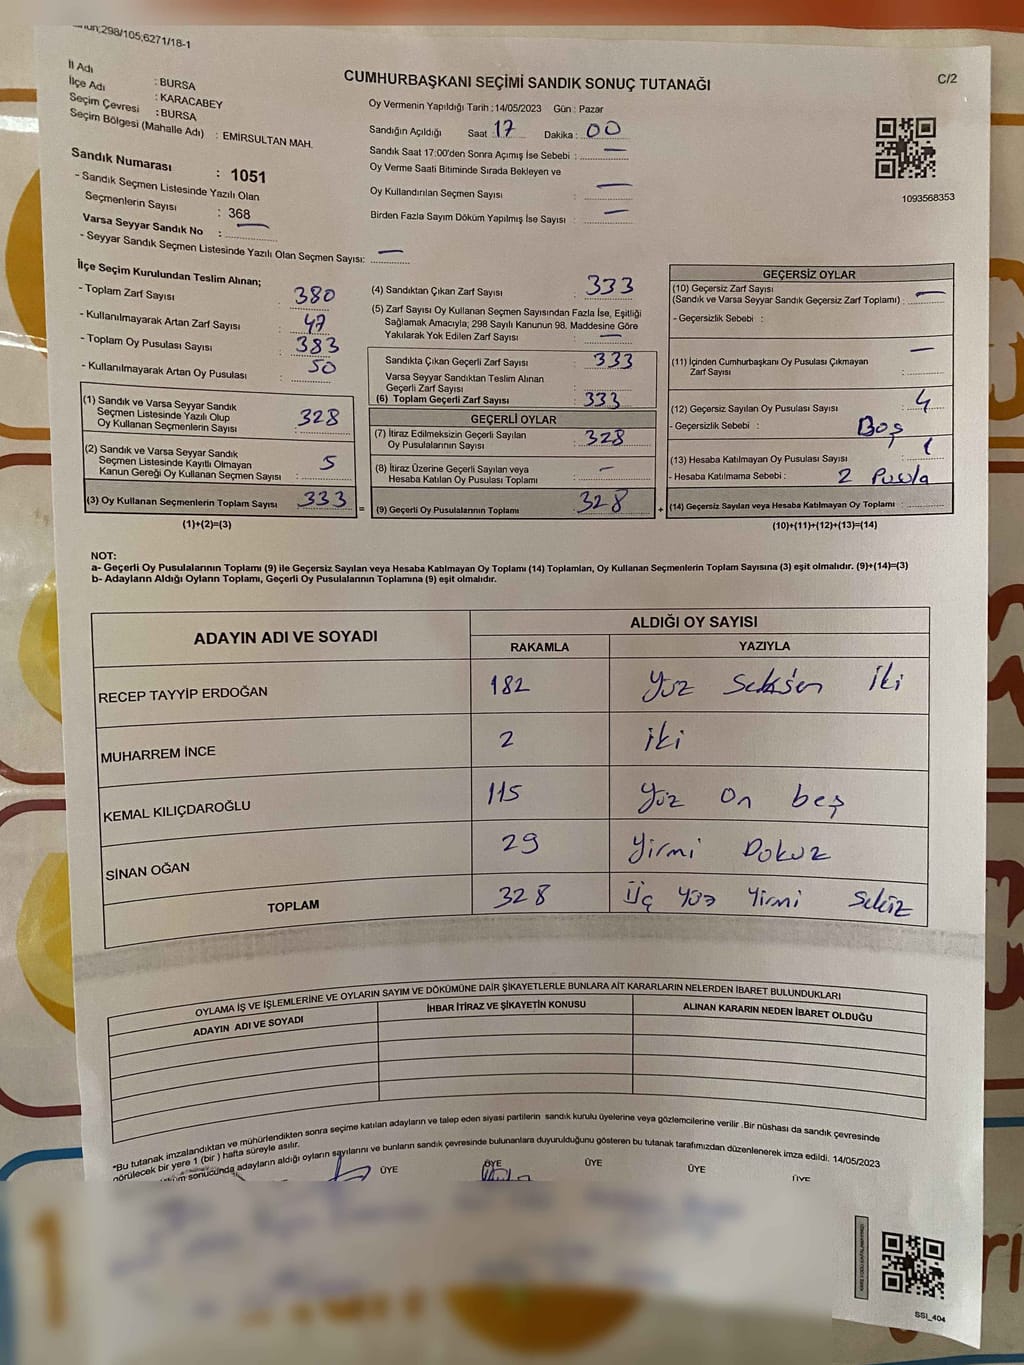 298/105,6271/18-1
C/2
CUMHURBAŞKANI SEÇİMİ SANDIK SONUÇ TUTANAĞI
İl Adı : BURSA
İlçe Adı : KARACABEY
Seçim Çevresi : BURSA
Seçim Bölgesi (Mahalle Adı) : EMİRSULTAN MAH.
Sandık Numarası : 1051
- Sandık Seçmen Listesinde Yazılı Olan
Seçmenlerin Sayısı : 368
Varsa Seyyar Sandık No : —
- Seyyar Sandık Seçmen Listesinde Yazılı Olan Seçmen Sayısı: —
Oy Vermenin Yapıldığı Tarih : 14/05/2023 Gün : Pazar
Sandığın Açıldığı Saat : 17 Dakika : 00
Sandık Saat 17:00'den Sonra Açımış İse Sebebi : —
Oy Verme Saati Bitiminde Sırada Bekleyen ve
Oy Kullandırılan Seçmen Sayısı : —
Birden Fazla Sayım Döküm Yapılmış İse Sayısı : —
1093568353
İlçe Seçim Kurulundan Teslim Alınan;
- Toplam Zarf Sayısı : 380
- Kullanılmayarak Artan Zarf Sayısı : 47
- Toplam Oy Pusulası Sayısı : 383
- Kullanılmayarak Artan Oy Pusulası : 50
(1) Sandık ve Varsa Seyyar Sandık
Seçmen Listesinde Yazılı Olup
Oy Kullanan Seçmenlerin Sayısı : 328
(2) Sandık ve Varsa Seyyar Sandık
Seçmen Listesinde Kayıtlı Olmayan
Kanun Gereği Oy Kullanan Seçmen Sayısı : 5
(3) Oy Kullanan Seçmenlerin Toplam Sayısı : 333
(1)+(2)=(3)
=
(4) Sandıktan Çıkan Zarf Sayısı : 333
(5) Zarf Sayısı Oy Kullanan Seçmen Sayısından Fazla İse, Eşitliği
Sağlamak Amacıyla; 298 Sayılı Kanunun 98. Maddesine Göre
Yakılarak Yok Edilen Zarf Sayısı : —
Sandıkta Çıkan Geçerli Zarf Sayısı : 333
Varsa Seyyar Sandıktan Teslim Alınan
Geçerli Zarf Sayısı :
(6) Toplam Geçerli Zarf Sayısı : 333
GEÇERLİ OYLAR
(7) İtiraz Edilmeksizin Geçerli Sayılan
Oy Pusulalarının Sayısı : 328
(8) İtiraz Üzerine Geçerli Sayılan veya
Hesaba Katılan Oy Pusulası Toplamı : —
(9) Geçerli Oy Pusulalarının Toplamı : 328
+
GEÇERSİZ OYLAR
(10) Geçersiz Zarf Sayısı
(Sandık ve Varsa Seyyar Sandık Geçersiz Zarf Toplamı) : —
- Geçersizlik Sebebi :
(11) İçinden Cumhurbaşkanı Oy Pusulası Çıkmayan
Zarf Sayısı : —
(12) Geçersiz Sayılan Oy Pusulası Sayısı : 4
- Geçersizlik Sebebi : Boş
(13) Hesaba Katılmayan Oy Pusulası Sayısı : 1
- Hesaba Katılmama Sebebi : 2 Pusula
(14) Geçersiz Sayılan veya Hesaba Katılmayan Oy Toplamı :
(10)+(11)+(12)+(13)=(14)
NOT:
a- Geçerli Oy Pusulalarının Toplamı (9) ile Geçersiz Sayılan veya Hesaba Katılmayan Oy Toplamı (14) Toplamları, Oy Kullanan Seçmenlerin Toplam Sayısına (3) eşit olmalıdır. (9)+(14)=(3)
b- Adayların Aldığı Oyların Toplamı, Geçerli Oy Pusulalarının Toplamına (9) eşit olmalıdır.
ADAYIN ADI VE SOYADI
ALDIĞI OY SAYISI
RAKAMLA YAZIYLA
RECEP TAYYİP ERDOĞAN 182 Yüz Seksen İki
MUHARREM İNCE 2 iki
KEMAL KILIÇDAROĞLU 115 Yüz On beş
SİNAN OĞAN 29 Yirmi Dokuz
TOPLAM 328 Üç Yüz Yirmi Sekiz
OYLAMA İŞ VE İŞLEMLERİNE VE OYLARIN SAYIM VE DÖKÜMÜNE DAİR ŞİKAYETLERLE BUNLARA AİT KARARLARIN NELERDEN İBARET BULUNDUKLARI
ADAYIN ADI VE SOYADI İHBAR İTİRAZ VE ŞİKAYETİN KONUSU ALINAN KARARIN NEDEN İBARET OLDUĞU
*Bu tutanak imzalandıktan ve mühürlendikten sonra seçime katılan adayların ve talep eden siyasi partilerin sandık kurulu üyelerine veya gözlemcilerine verilir .Bir nüshası da sandık çevresinde
görülecek bir yere 1 (bir ) hafta süreyle asılır.
sonucunda adayların aldığı oyların sayılarını ve bunların sandık çevresinde bulunanlara duyurulduğunu gösteren bu tutanak tarafımızdan düzenlenerek imza edildi. 14/05/2023
ÜYE ÜYE ÜYE ÜYE ÜYE
SSI_404